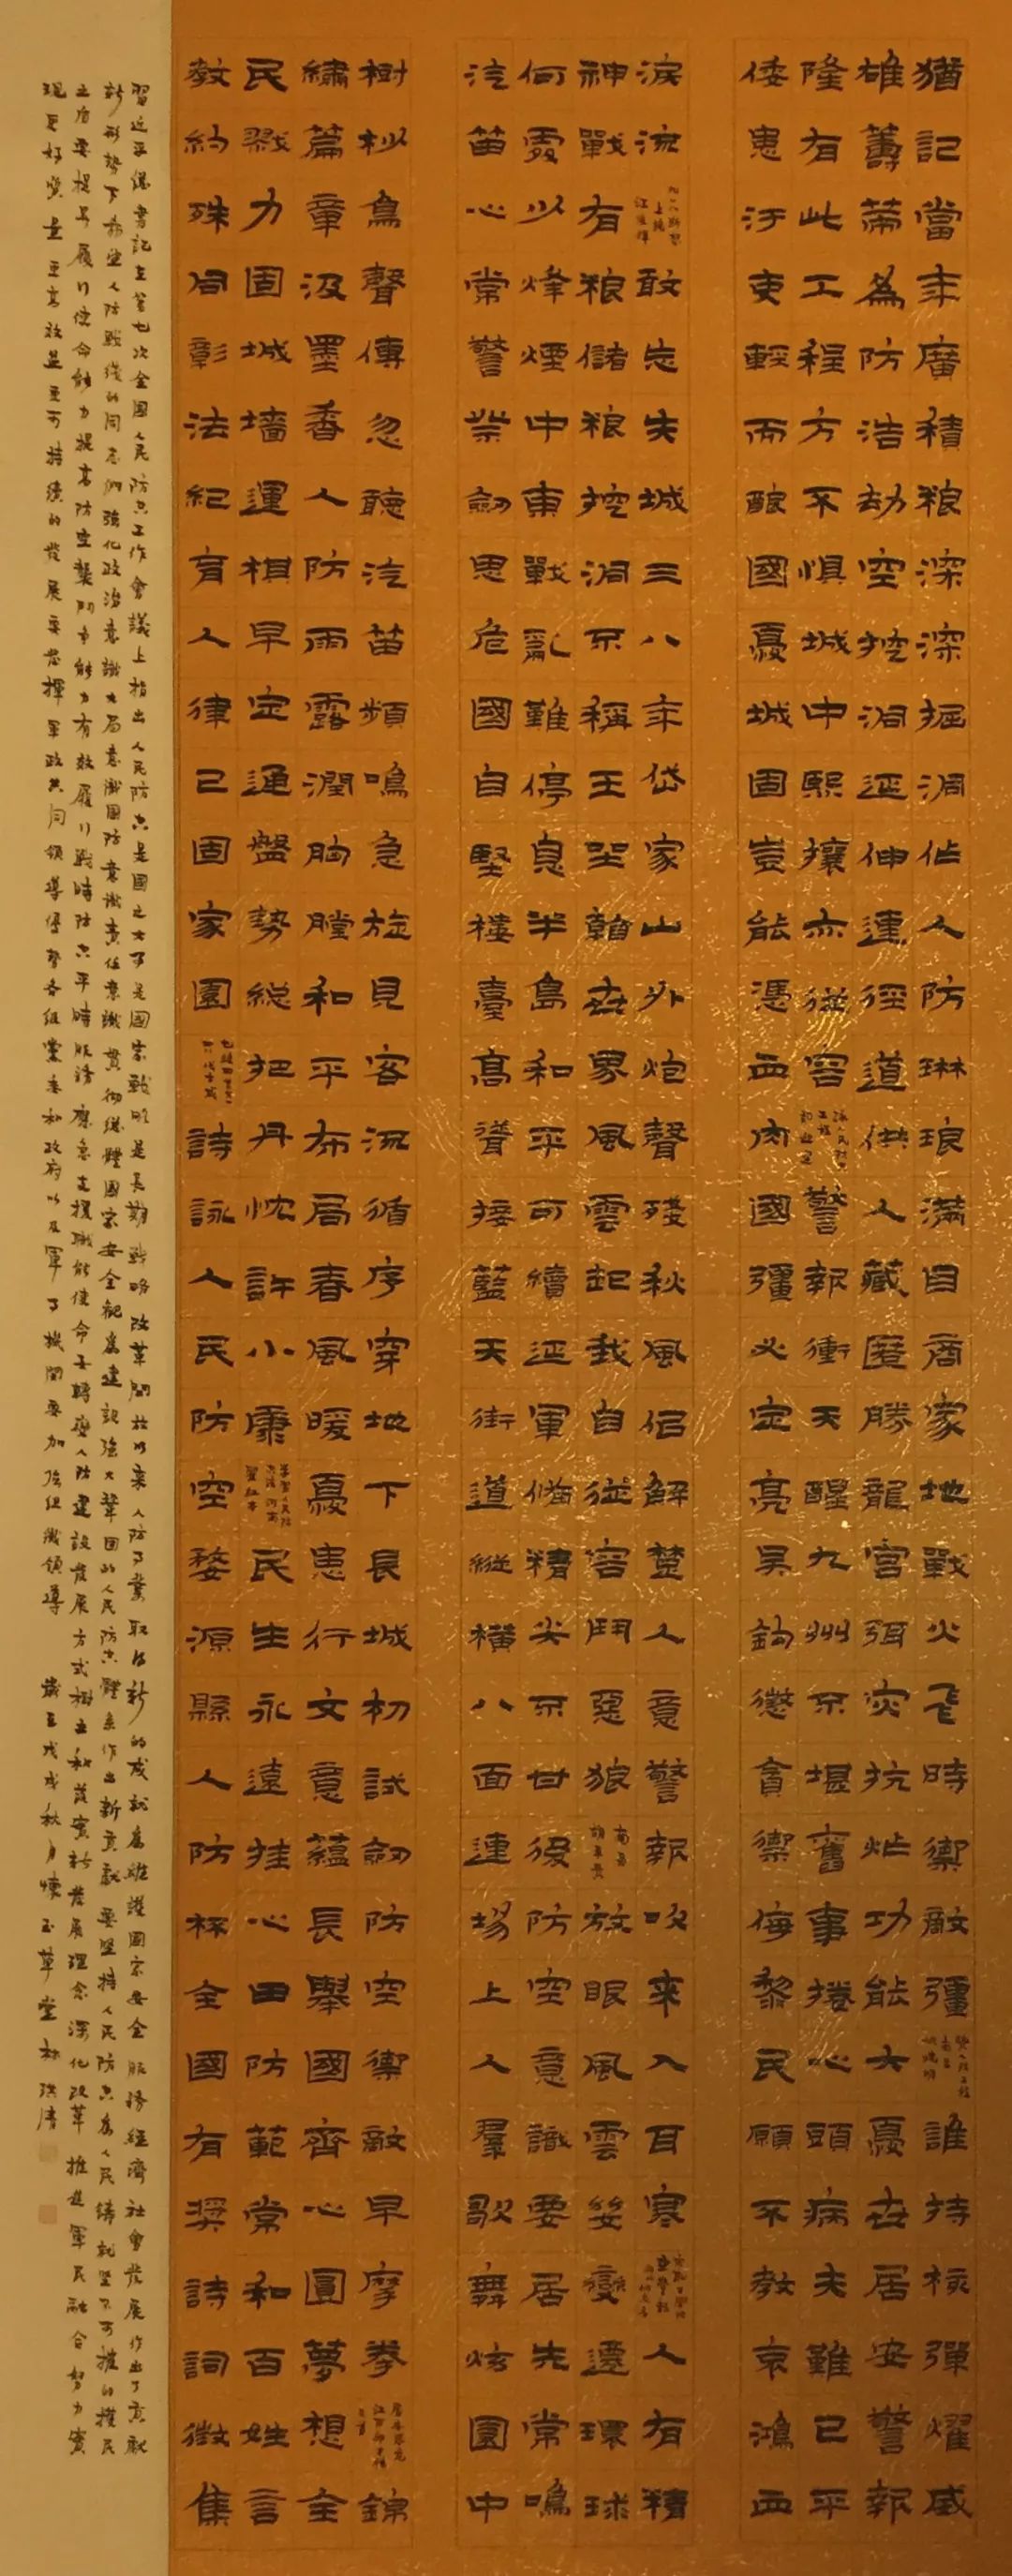 猶記當年廣積粮深深掘洞佑人防琳琅滿目商家地戰火飛時禦敵疆誰持核彈耀威
雄籌幕為防浩劫空挖洞延伸連徑道供人藏匿勝龍宮弭灾抗炸功能大憂世居安警報
隆有此工程方不惧城中熙攘亦從容警報衝天醒九州不堪舊事捲心頭病夫難已平
倭患汙吏輕而釀國憂城固豈能憑血肉國疆必定亮吴鈎懲貪禦侮黎民願不教哀鴻血
淚流敢忘失城三八年岱家山外炮聲殘秋風侣解楚人意警報吹來入耳寒人有積
神戰有粮儲粮挖洞不稱王坐世界風雲起我自從容鬥惡狼放眼風雲幾變遷環球
何處少烽煙中東戰亂難停息半島和平可續延軍備精尖不甘後防空意識要居先常鳴
汽笛心常警崇劒思危國自堅樓臺高聳接藍天街道縱橫八面連場上人羣歌舞炫園中
樹杪鳥聲傳忽聽汽笛頻鳴急旋見客流循序穿地下長城初試劒防空禦敵早摩拳錦
繡篇章汲墨香人防雨露潤胸膛和平布局春風暖憂患行文意蘊長舉國齊心圓夢想全
民戮力固城墻運棋早定通盤勢總把丹忱許小康民生永遠挂心田防範常和百姓言
教約殊同彰法紀育人律己固家園詩詠人民防空婺源縣人防杯全國有奖詩詞徵集
習近平總書記在第七次全國人民防空工作會議上指出人民防空是國之大事是國家戰略是長期戰略改革開放以來人防事業取得新的成就為維護國家安全服務經濟社會發展作出了貢獻
新形勢下希望人防戰綫的同志們強化政治意識大局意識國防意識責任意識貫徹總體國家安全觀為建設強大鞏固的人民防空體系作出新貢獻要堅持人民防空為人民鑄就堅不可摧的護民
之盾要提高履行使命能力提高防空襲鬥爭能力有效履行戰時防空平時服務應急支援職能使命要轉變人防建設發展方式樹立和落實新發展理念深化改革推進軍民融合努力實
現更好質量更高效益更可持續的發展要發揮軍政共同領導優勢各級黨委和政府以及軍事機關要加強組織領導 歲在戊戌秋月懷玉草堂